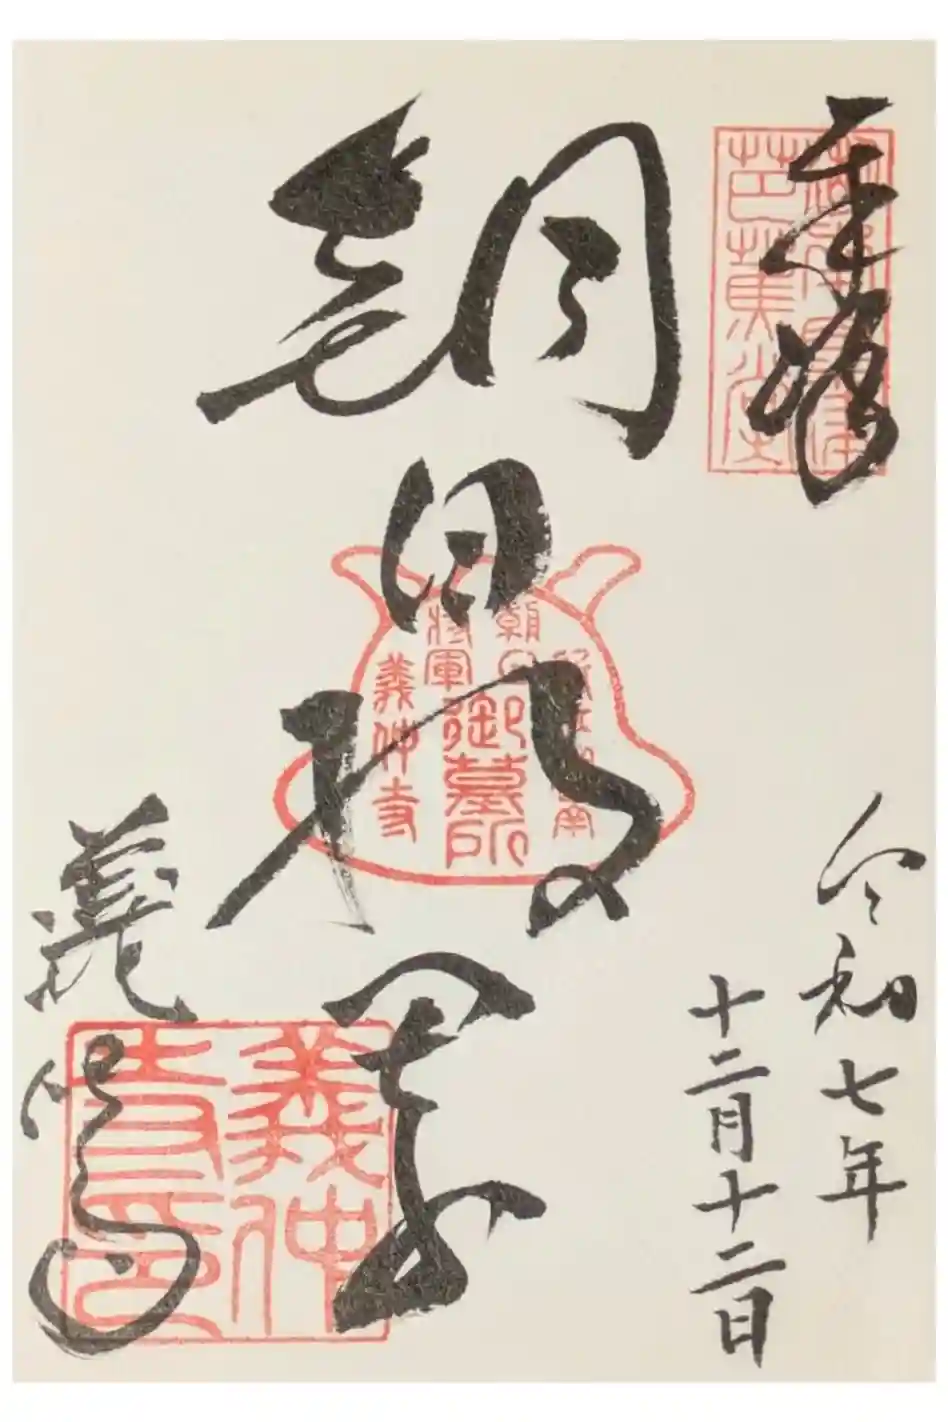 奉拝
芭蕉堂
令和七年
十二月十二日
朝日将軍
朝日
将軍
御墓所
義仲寺
義仲寺
義仲
寺印